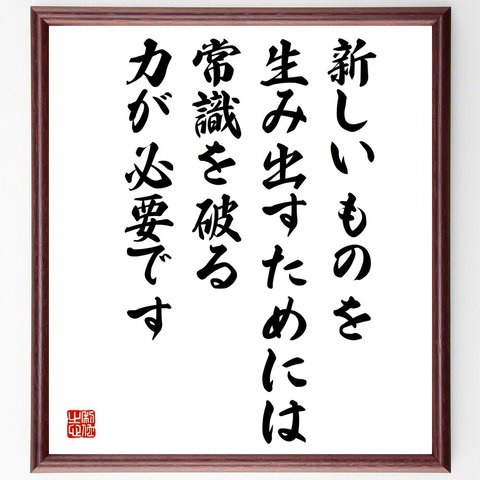 新しいものを
生み出すためには
常識を破る
力が必要です